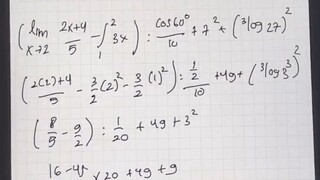 (lim x→2 (2x+4)/5 - ∫₁² 3x) : cos60°/10 + 7² + (³log 27)²
((2(2)+4)/5 - 3/2(2)² - 3/2(1)²) : (1/2)/10 + 49 + (³log3³)²
(8/5 - 9/2) : 1/20 + 49 + 3²
× 20 + 49 + 9